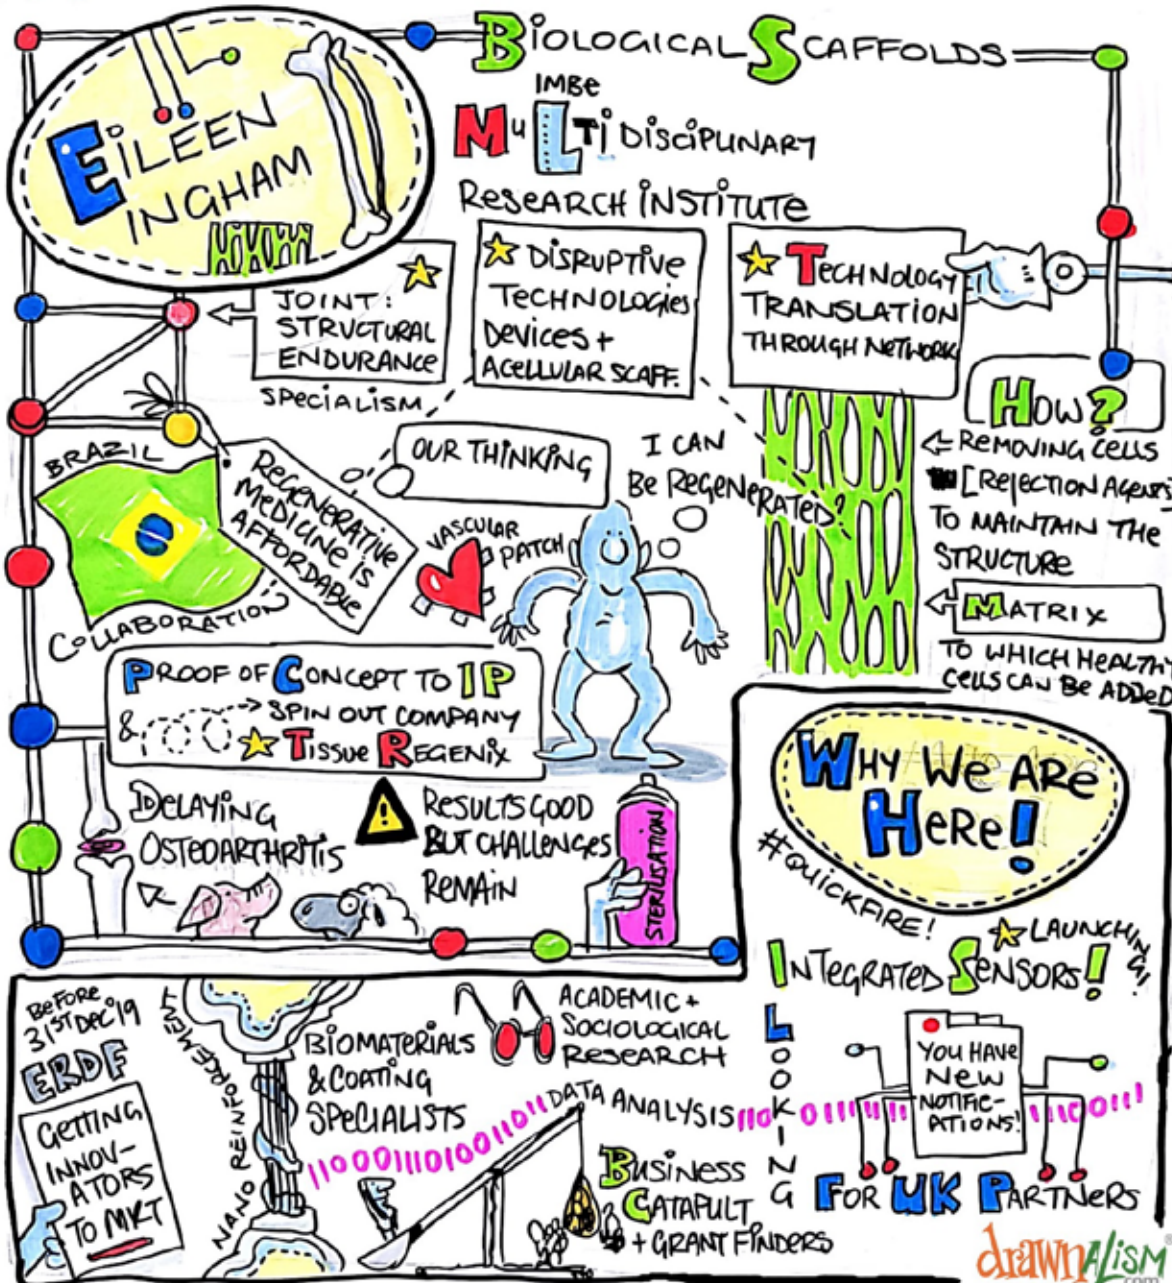 EILEEN
INGHAM
BIOLOGICAL SCAFFOLDS
IMBE
MULTI DISCIPLINARY
RESEARCH INSTITUTE
JOINT:
STRUCTURAL
ENDURANCE
SPECIALISM
DISRUPTIVE
TECHNOLOGIES
DEVICES +
ACELLULAR SCAFF.
TECHNOLOGY
TRANSLATION
THROUGH NETWORK
HOW?
REMOVING CELLS
[REJECTION AGENTS]
TO MAINTAIN THE
STRUCTURE
MATRIX
TO WHICH HEALTHY
CELLS CAN BE ADDED
BRAZIL
COLLABORATION
REGENERATIVE
MEDICINE IS
AFFORDABLE
OUR THINKING
I CAN
BE REGENERATED?
VASCULAR
PATCH
PROOF OF CONCEPT TO IP
& SPIN OUT COMPANY
TISSUE REGENIX
DELAYING
OSTEOARTHRITIS
RESULTS GOOD
BUT CHALLENGES
REMAIN
STERILISATION
WHY WE ARE
HERE!
#QUICKFIRE!
LAUNCHING!
INTEGRATED SENSORS!
LOOKING
YOU HAVE
NEW
NOTIFIC-
ATIONS!
FOR UK PARTNERS
BEFORE
31ST DEC '19
ERDF
GETTING
INNOV-
ATORS
TO MKT
NANO REINFORCEMENT
BIOMATERIALS
& COATING
SPECIALISTS
ACADEMIC +
SOCIOLOGICAL
RESEARCH
DATA ANALYSIS
BUSINESS
CATAPULT
+ GRANT FINDERS
drawnalism
.com